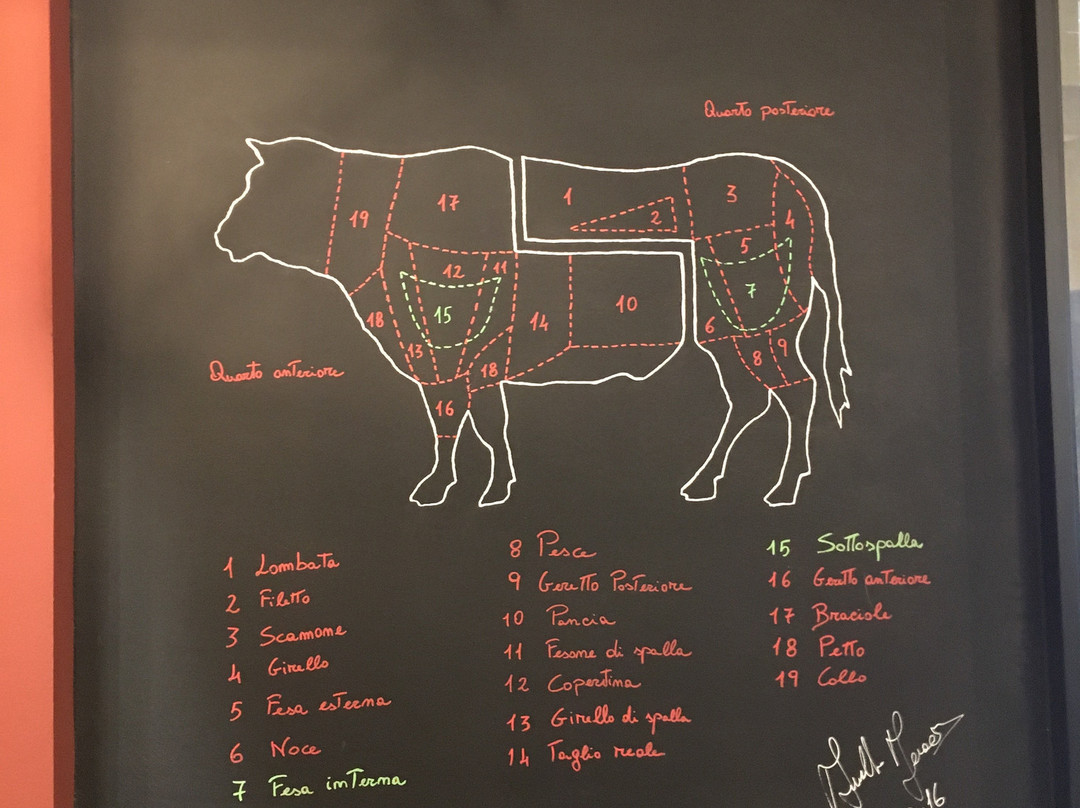 Quarto posteriore
1
2
3
4
5
6
7
8
9
10
11
12
13
14
15
16
17
18
18
19
Quarto anteriore
1 Lombata
2 Filetto
3 Scamone
4 Girello
5 Fesa esterna
6 Noce
7 Fesa interna
8 Pesce
9 Geretto Posteriore
10 Pancia
11 Fesone di spalla
12 Copertina
13 Girello di spalla
14 Taglio reale
15 Sottospalla
16 Geretto anteriore
17 Braciole
18 Petto
19 Collo
16